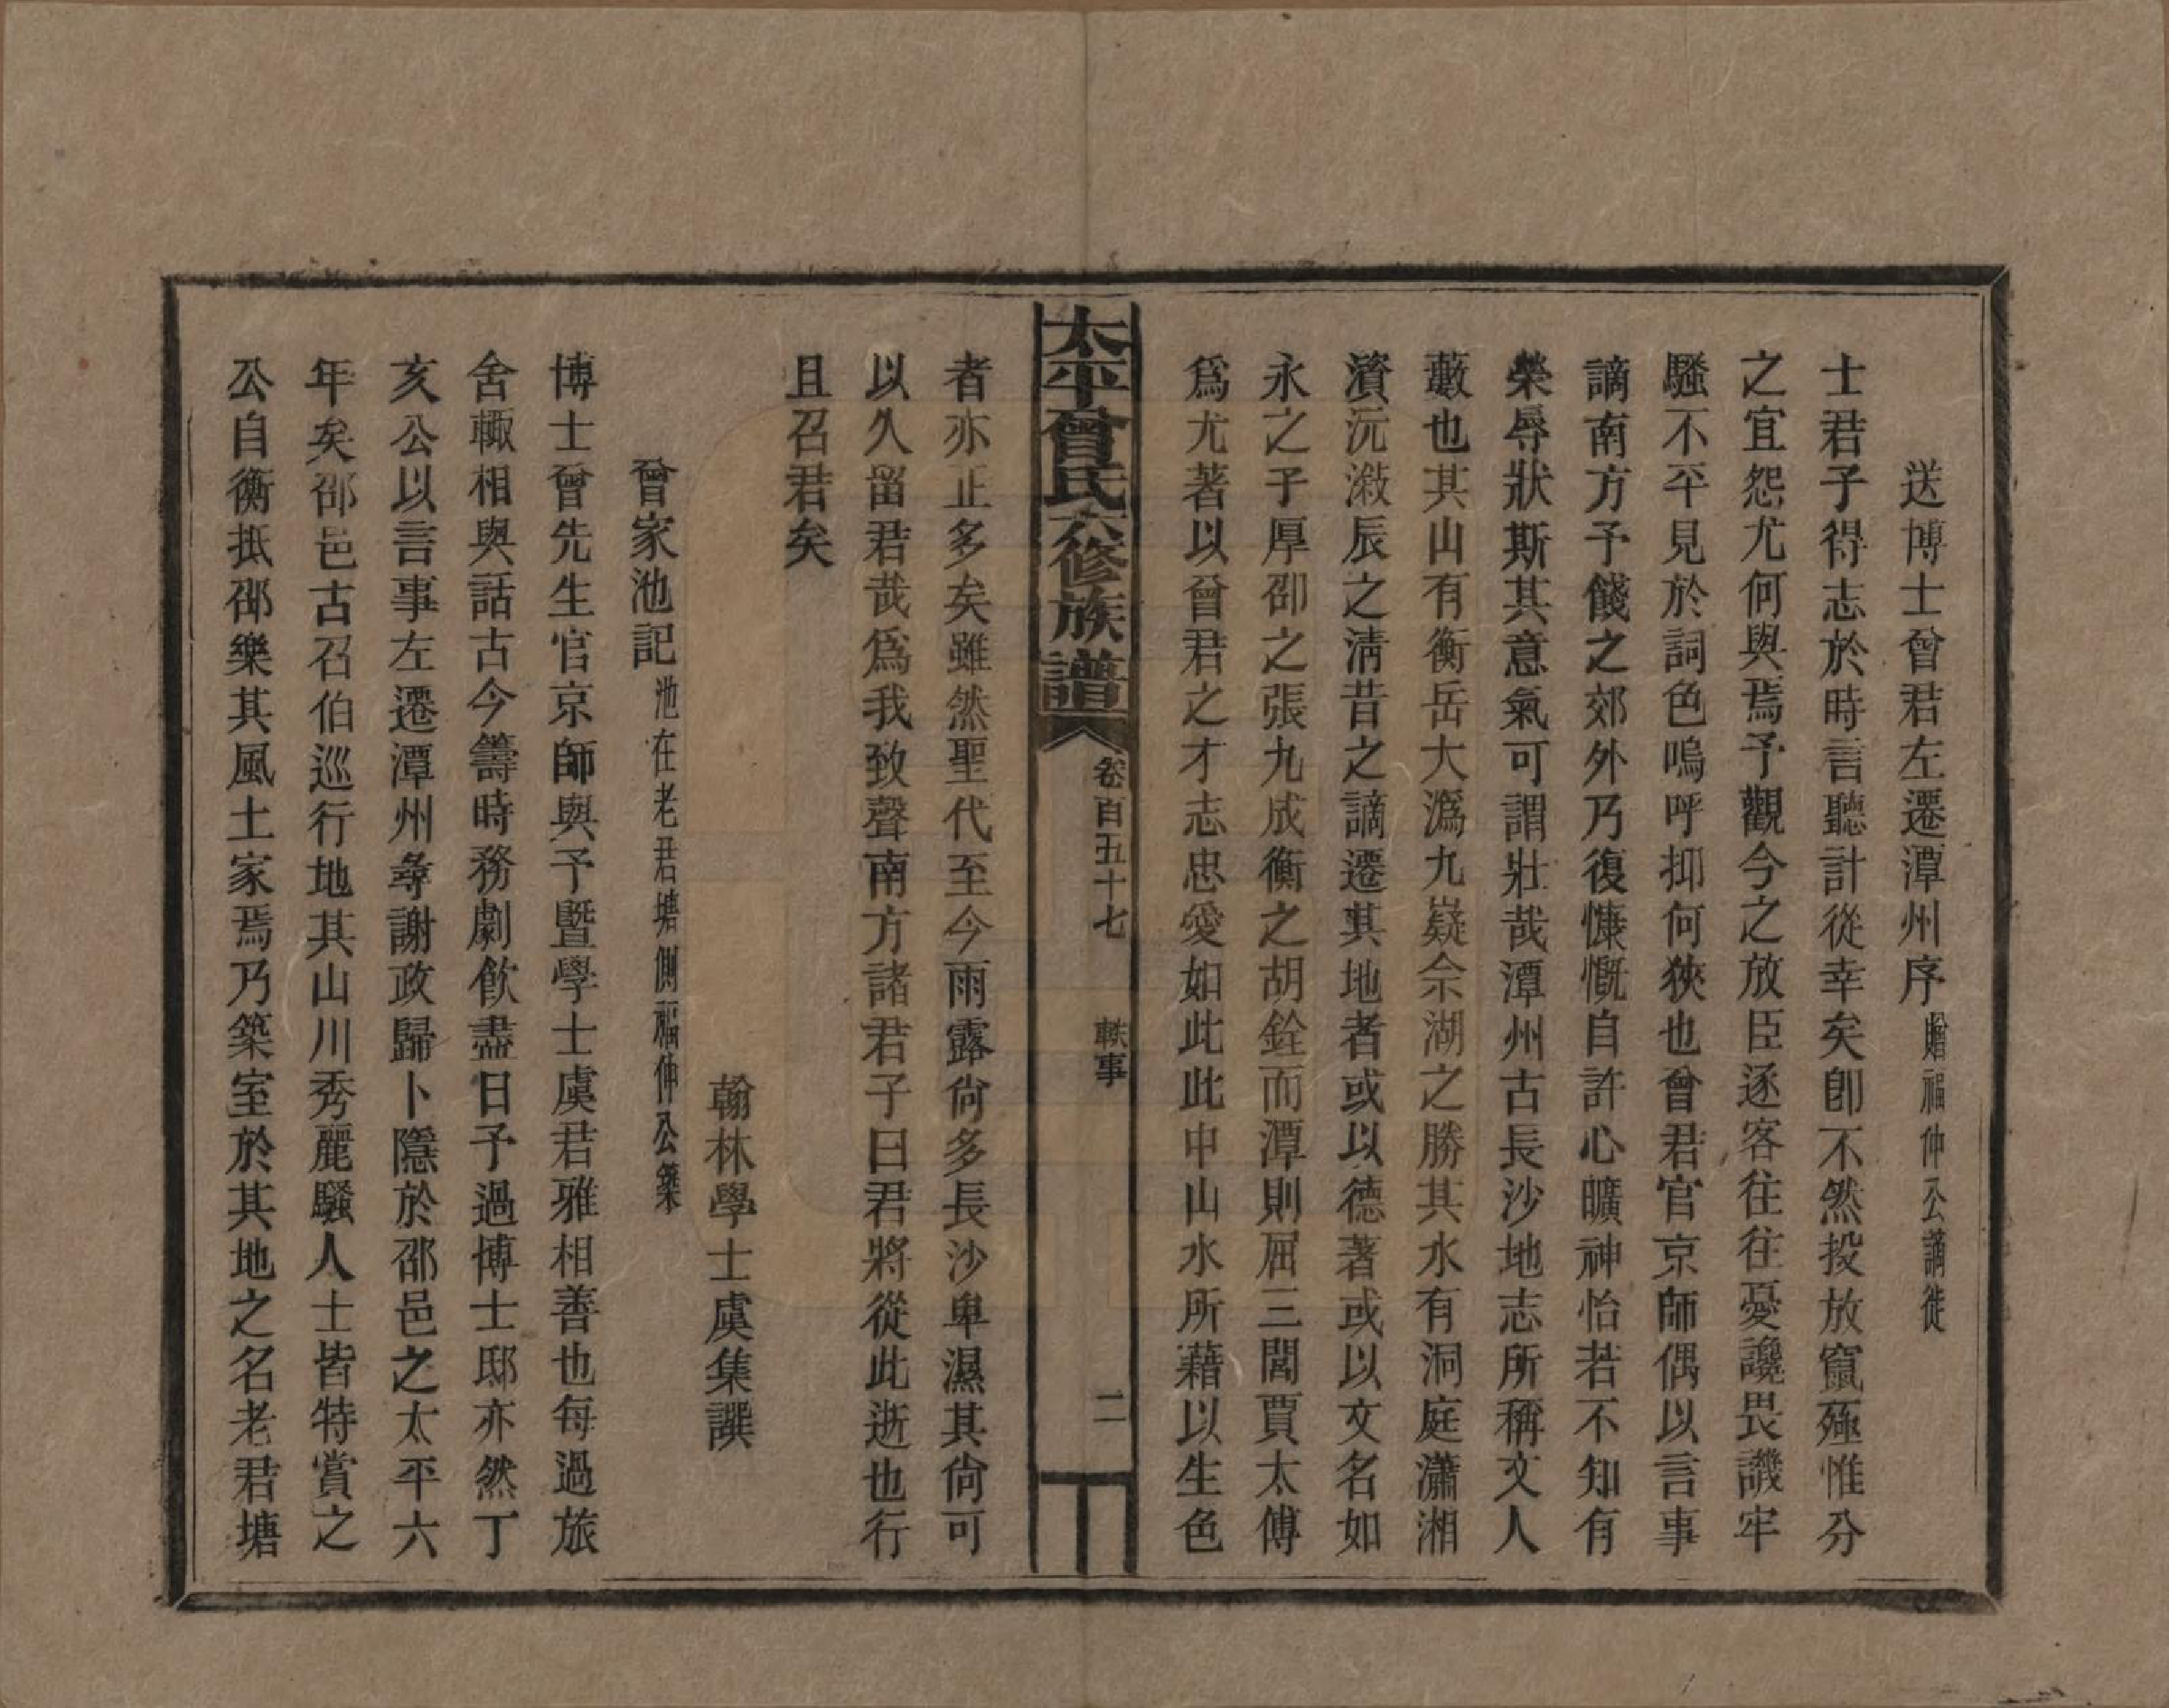 送博士曾君左遷潭州序贈福仲公謫徙
士君子得志於時言聽計從幸矣卽不然投放竄殛惟分
之宜怨尤何與焉予觀今之放臣逐客往往憂讒畏譏牢
騷不平見於詞色嗚呼抑何狹也曾君官京師偶以言事
謫南方予餞之郊外乃復慷慨自許心曠神怡若不知有
榮辱狀斯其意氣可謂壯哉潭州古長沙地志所稱文人
藪也其山有衡岳大潙九嶷佘湖之勝其水有洞庭瀟湘
濱沅漵辰之淸昔之謫遷其地者或以德著或以文名如
永之子厚邵之張九成衡之胡銓而潭則屈三閭賈太傅
爲尤著以曾君之才志忠愛如此此中山水所藉以生色
太平曾氏六修族譜
卷百五十七
軼事
二
者亦正多矣雖然聖代至今雨露尙多長沙卑濕其尙可
以久留君哉爲我致聲南方諸君子曰君將從此逝也行
且召君矣
翰林學士虞集譔
曾家池記池在老君塘側福仲公築
博士曾先生官京師與予曁學士虞君雅相善也每過旅
舍輙相與話古今籌時務劇飮盡日予過博士邸亦然丁
亥公以言事左遷潭州尋謝政歸卜隱於邵邑之太平六
年矣邵邑古召伯巡行地其山川秀麗騷人士皆特賞之
公自衡抵邵樂其風土家焉乃築室於其地之名老君塘